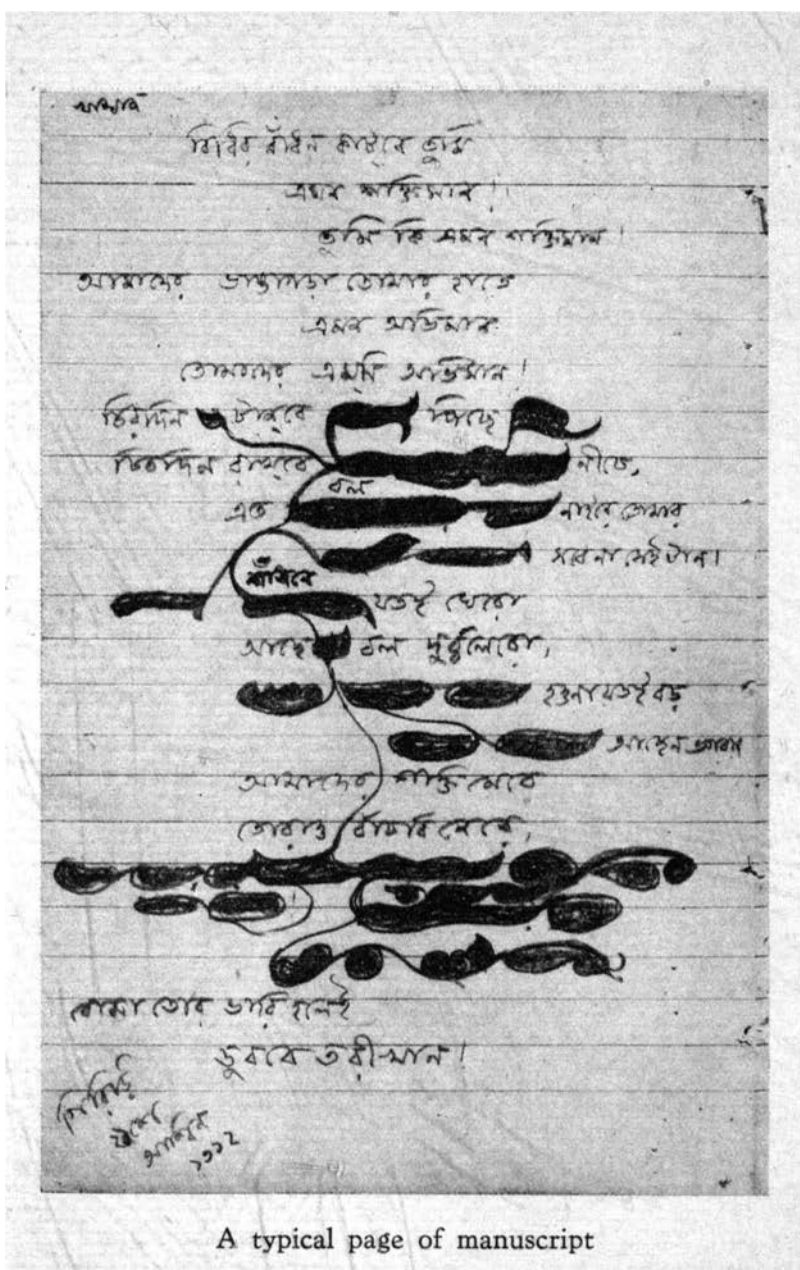 বিধির বাঁধন কাটবে তুমি
এমন শক্তিমান!
তুমি কি এমন শক্তিমান!
আমাদের ভাঙাগড়া তোমার হাতে
এমন অভিমান
তোমাদের এমনি অভিমান!
চিরদিন টানবে পিছে
চিরদিন রাখবে নীচে,
বল
এত নাইরে তোমার
সবেনা সেই টান।
যতই ঘেরো
আছে বল দুর্ব্বলেরো,
হওনা যতই বড়
আছেন ভগবান
আমাদের শক্তি মেরে
তোরাও বাঁচবিনেরে,
বোঝা তোর ভারি হলেই
ডুববে তরীখান!
গিরিডি
আশ্বিন
১৩১২
A typical page of manuscript